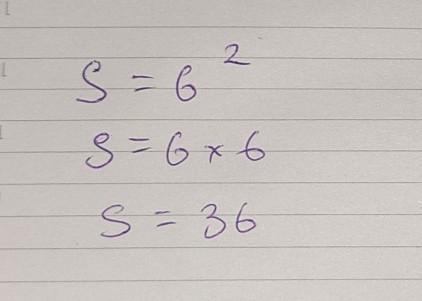 S = 6²
S = 6 × 6
S = 36